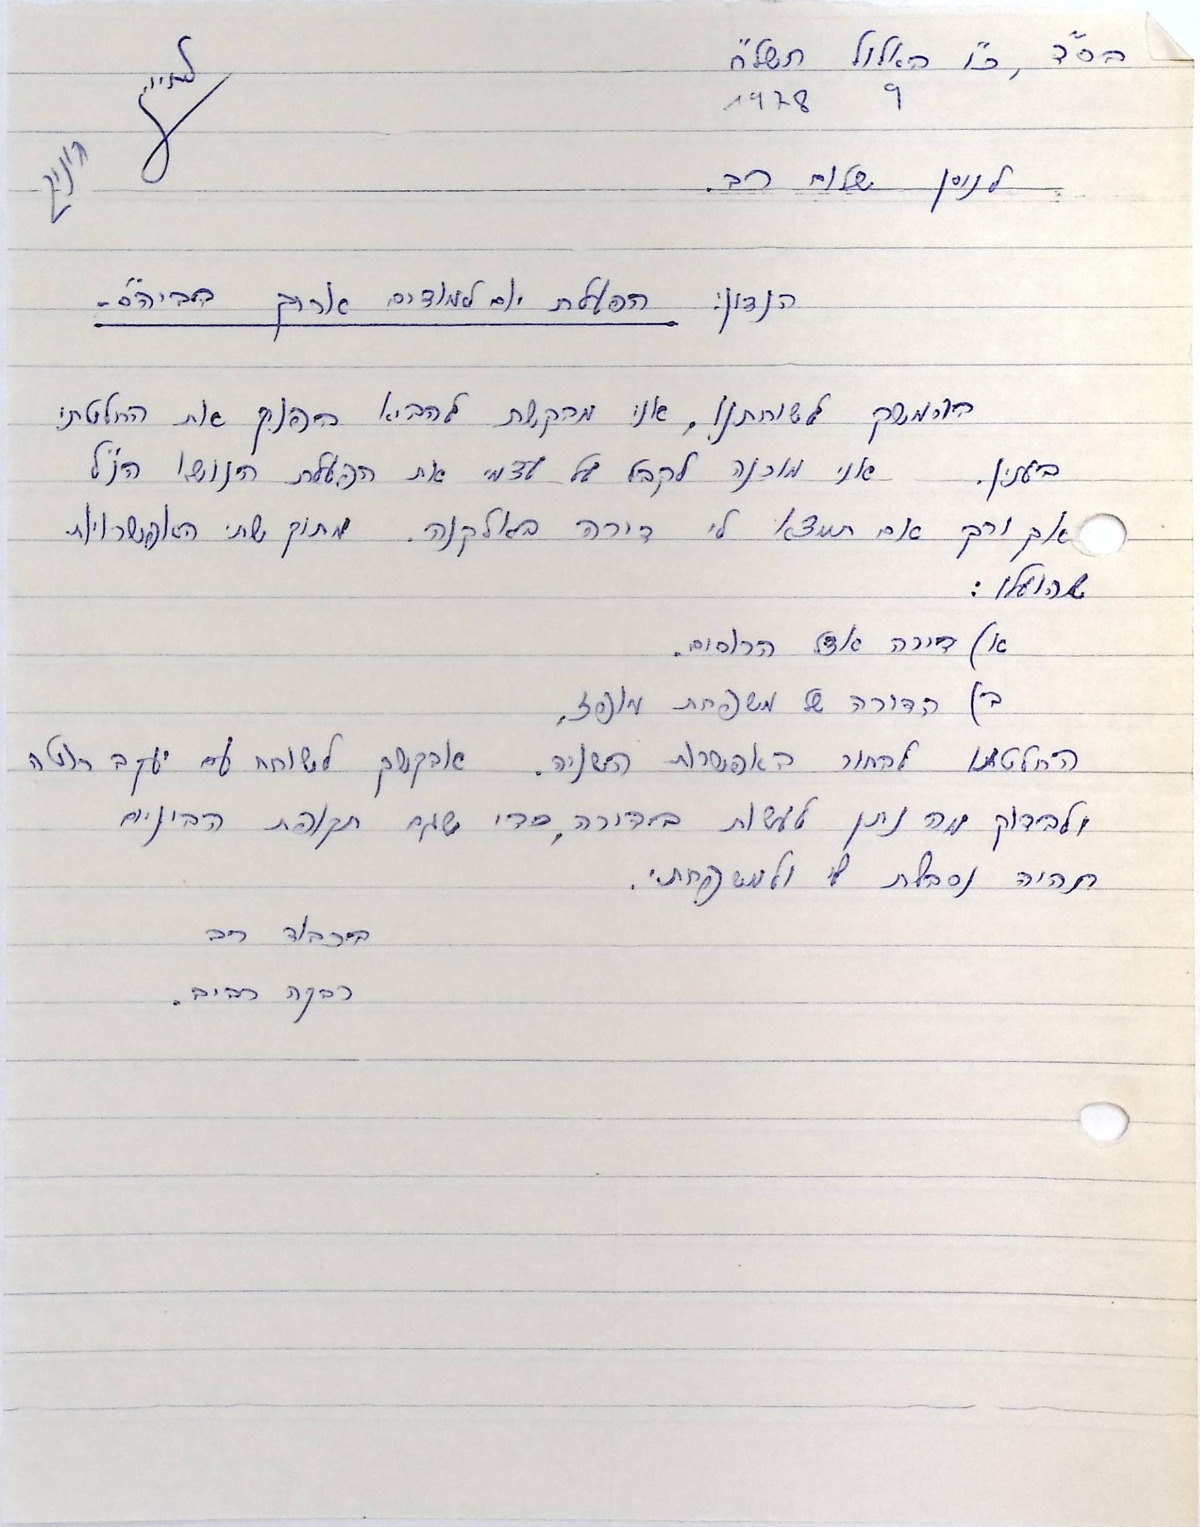 בס"ד, כ"ו באלול תשל"ח
9 1978
לתיוק
לנוסן שלום רב.
הנדון: הפעלת יום לימודים ארוך בביה"ס-
בהמשך לשיחתנו, אני מבקשת להביא בפניך את החלטתי
בענין. אני מוכנה לקבל על עצמי את הפעלת הנושא הנ"ל
אך ורק אם תמצא לי דירה באלקנה. מתוך שתי האפשרויות
שהועלו:
א) דירה אצל הרוסים.
ב) הדירה של משפחת מונפז,
החלטתי לבחור באפשרות השניה. אבקשך לשוחח עם יעקב רוטה
ולבדוק מה ניתן לעשות בדירה, כדי שגם תקופת הביניים
תהיה נסבלת לי ולמשפחתי.
בכבוד רב
רבקה רביב.